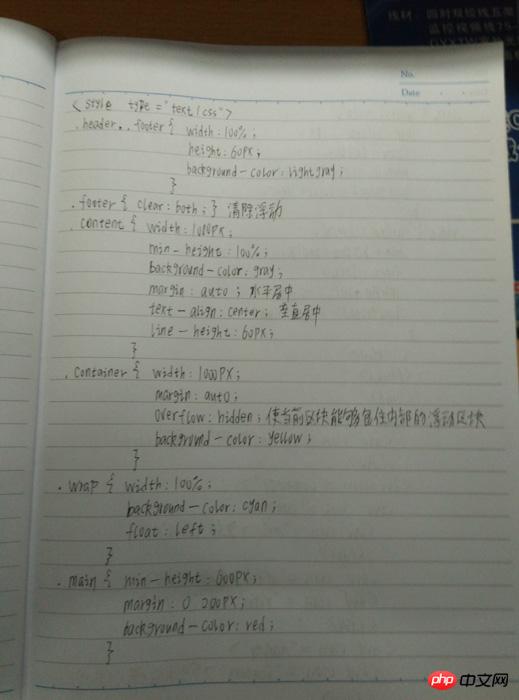 线材：四对双绞线五类
监控视频线75-
No.
Date
<style type="text/css">
.header, .footer { width:100%;
height:60px;
background-color:lightgray;
}
.footer { clear:both; } 清除浮动
.content { width:1000px;
min-height:100%;
background-color:gray;
margin:auto; 水平居中
text-align:center; 垂直居中
line-height:60px;
}
.container { width:1000px;
margin:auto;
overflow:hidden; 使当前区块能够包住内部的浮动区块
background-color:yellow;
}
.wrap { width:100%;
background-color:cyan;
float:left;
}
.main { min-height:600px;
margin:0 200px;
background-color:red;
}
php 中文网